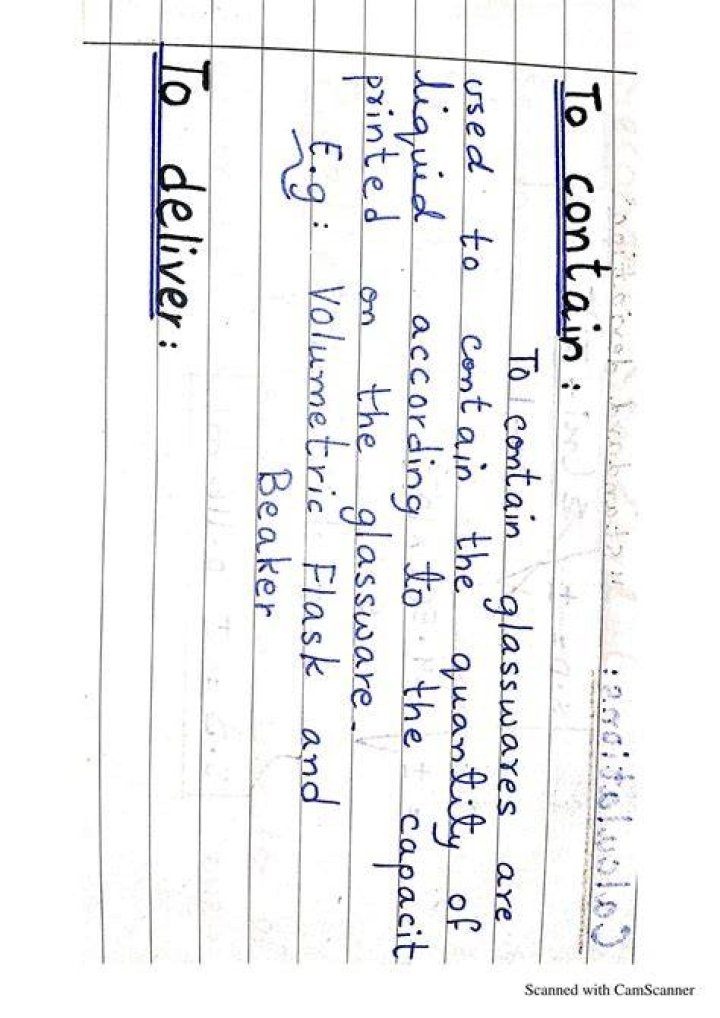 To contain:
To contain glasswares are
used to contain the quantity of
liquid according to the capacit
printed on the glassware.
E.g: Volumetric Flask and
Beaker
To deliver:
Calculations:
Scanned with CamScanner